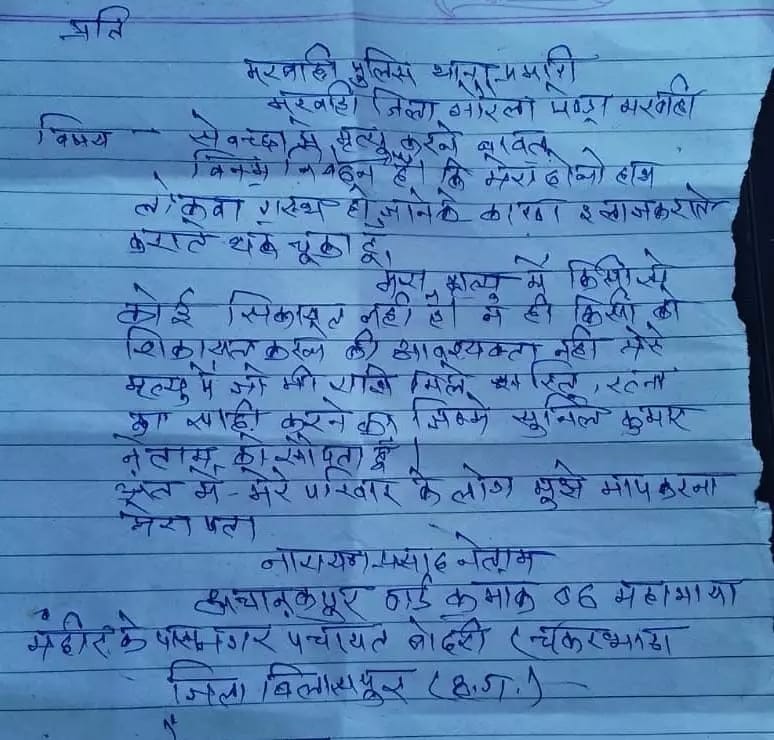 प्रति
मरवाही पुलिस थाना प्रभारी
मरवाही जिला गोरेला पेण्ड्रा मरवाही
विषय — सेवच्छा से मृत्यु करने बाबत्
विनम्र निवेदन है। कि मेरा दोनो हाथ
लोकवा ग्रस्थ हो जानेके कारण इलाजकराते
कराते थक चूका हू,
मेरा मृत्यु में किसी से
कोई सिकायत नही है। न ही किसी को
शिकायत करने की आवश्यकता नही मेरे
मृत्यु पे जो भी राशि मिले सरिता, रतना
का साही करने का जिम्मे सुनिल कुमार
नेताम को सोपता हूँ।
अंत में - मेरे परिवार के लोग मुझे माप करना
मेरा पता
नारायण प्रसाद नेताम
अचानकपूर वार्ड क्रमाक 06 महामाया
मंदीर के पास नगर पंचायत बोदरी (चकरभाठा
जिला बिलासपूर (छ.ग.) —